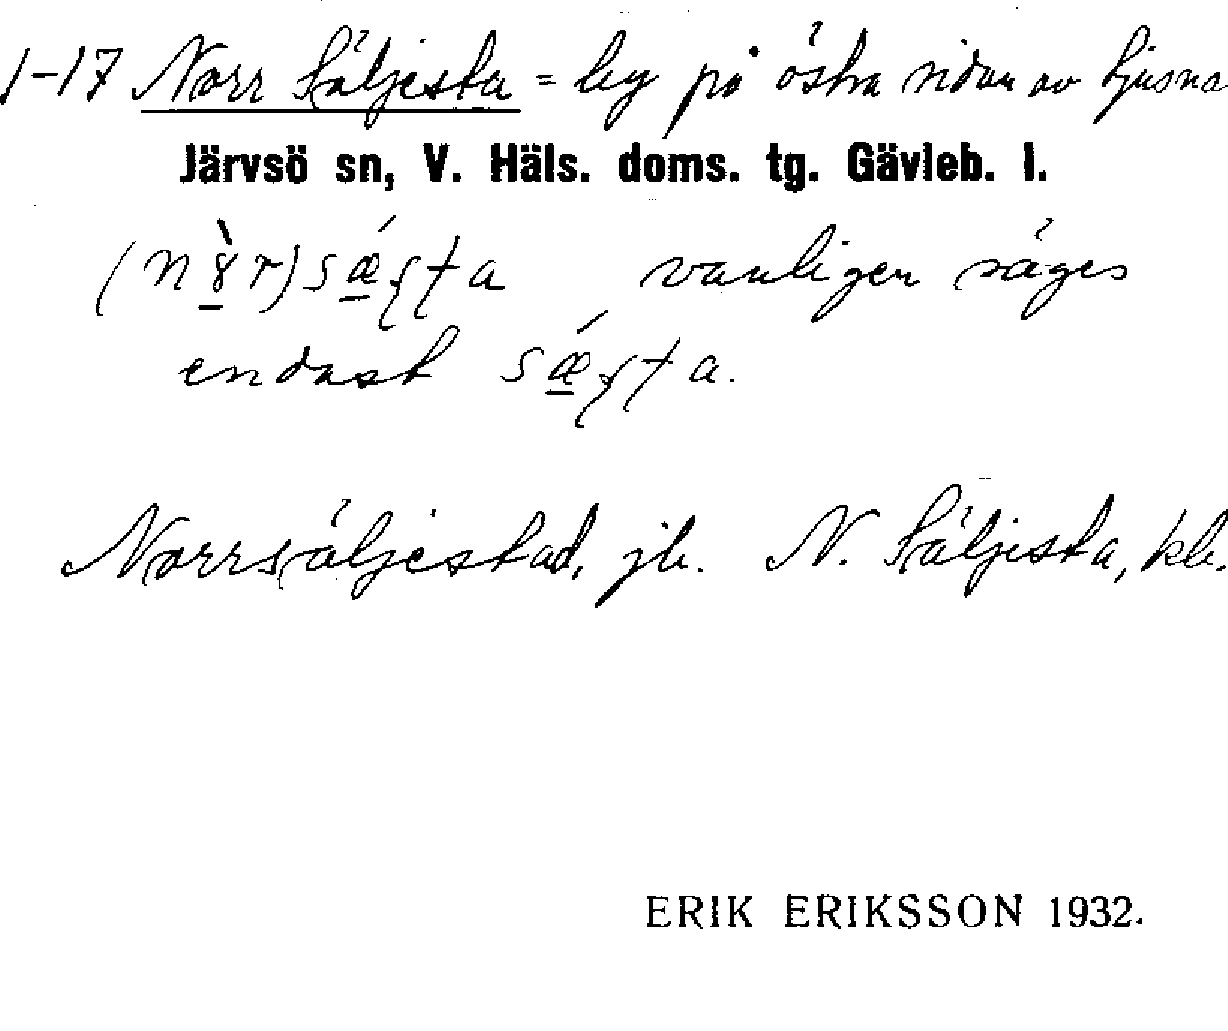 1-17 Norr Säljesta = by på östra sidan av Ljusna
Järvsö sn, V. Häls. doms. tg. Gävleb. l.
vanligen säges
endast
Norrsäljestad, jb. N. Säljesta, kb.
ERIK ERIKSSON 1932.